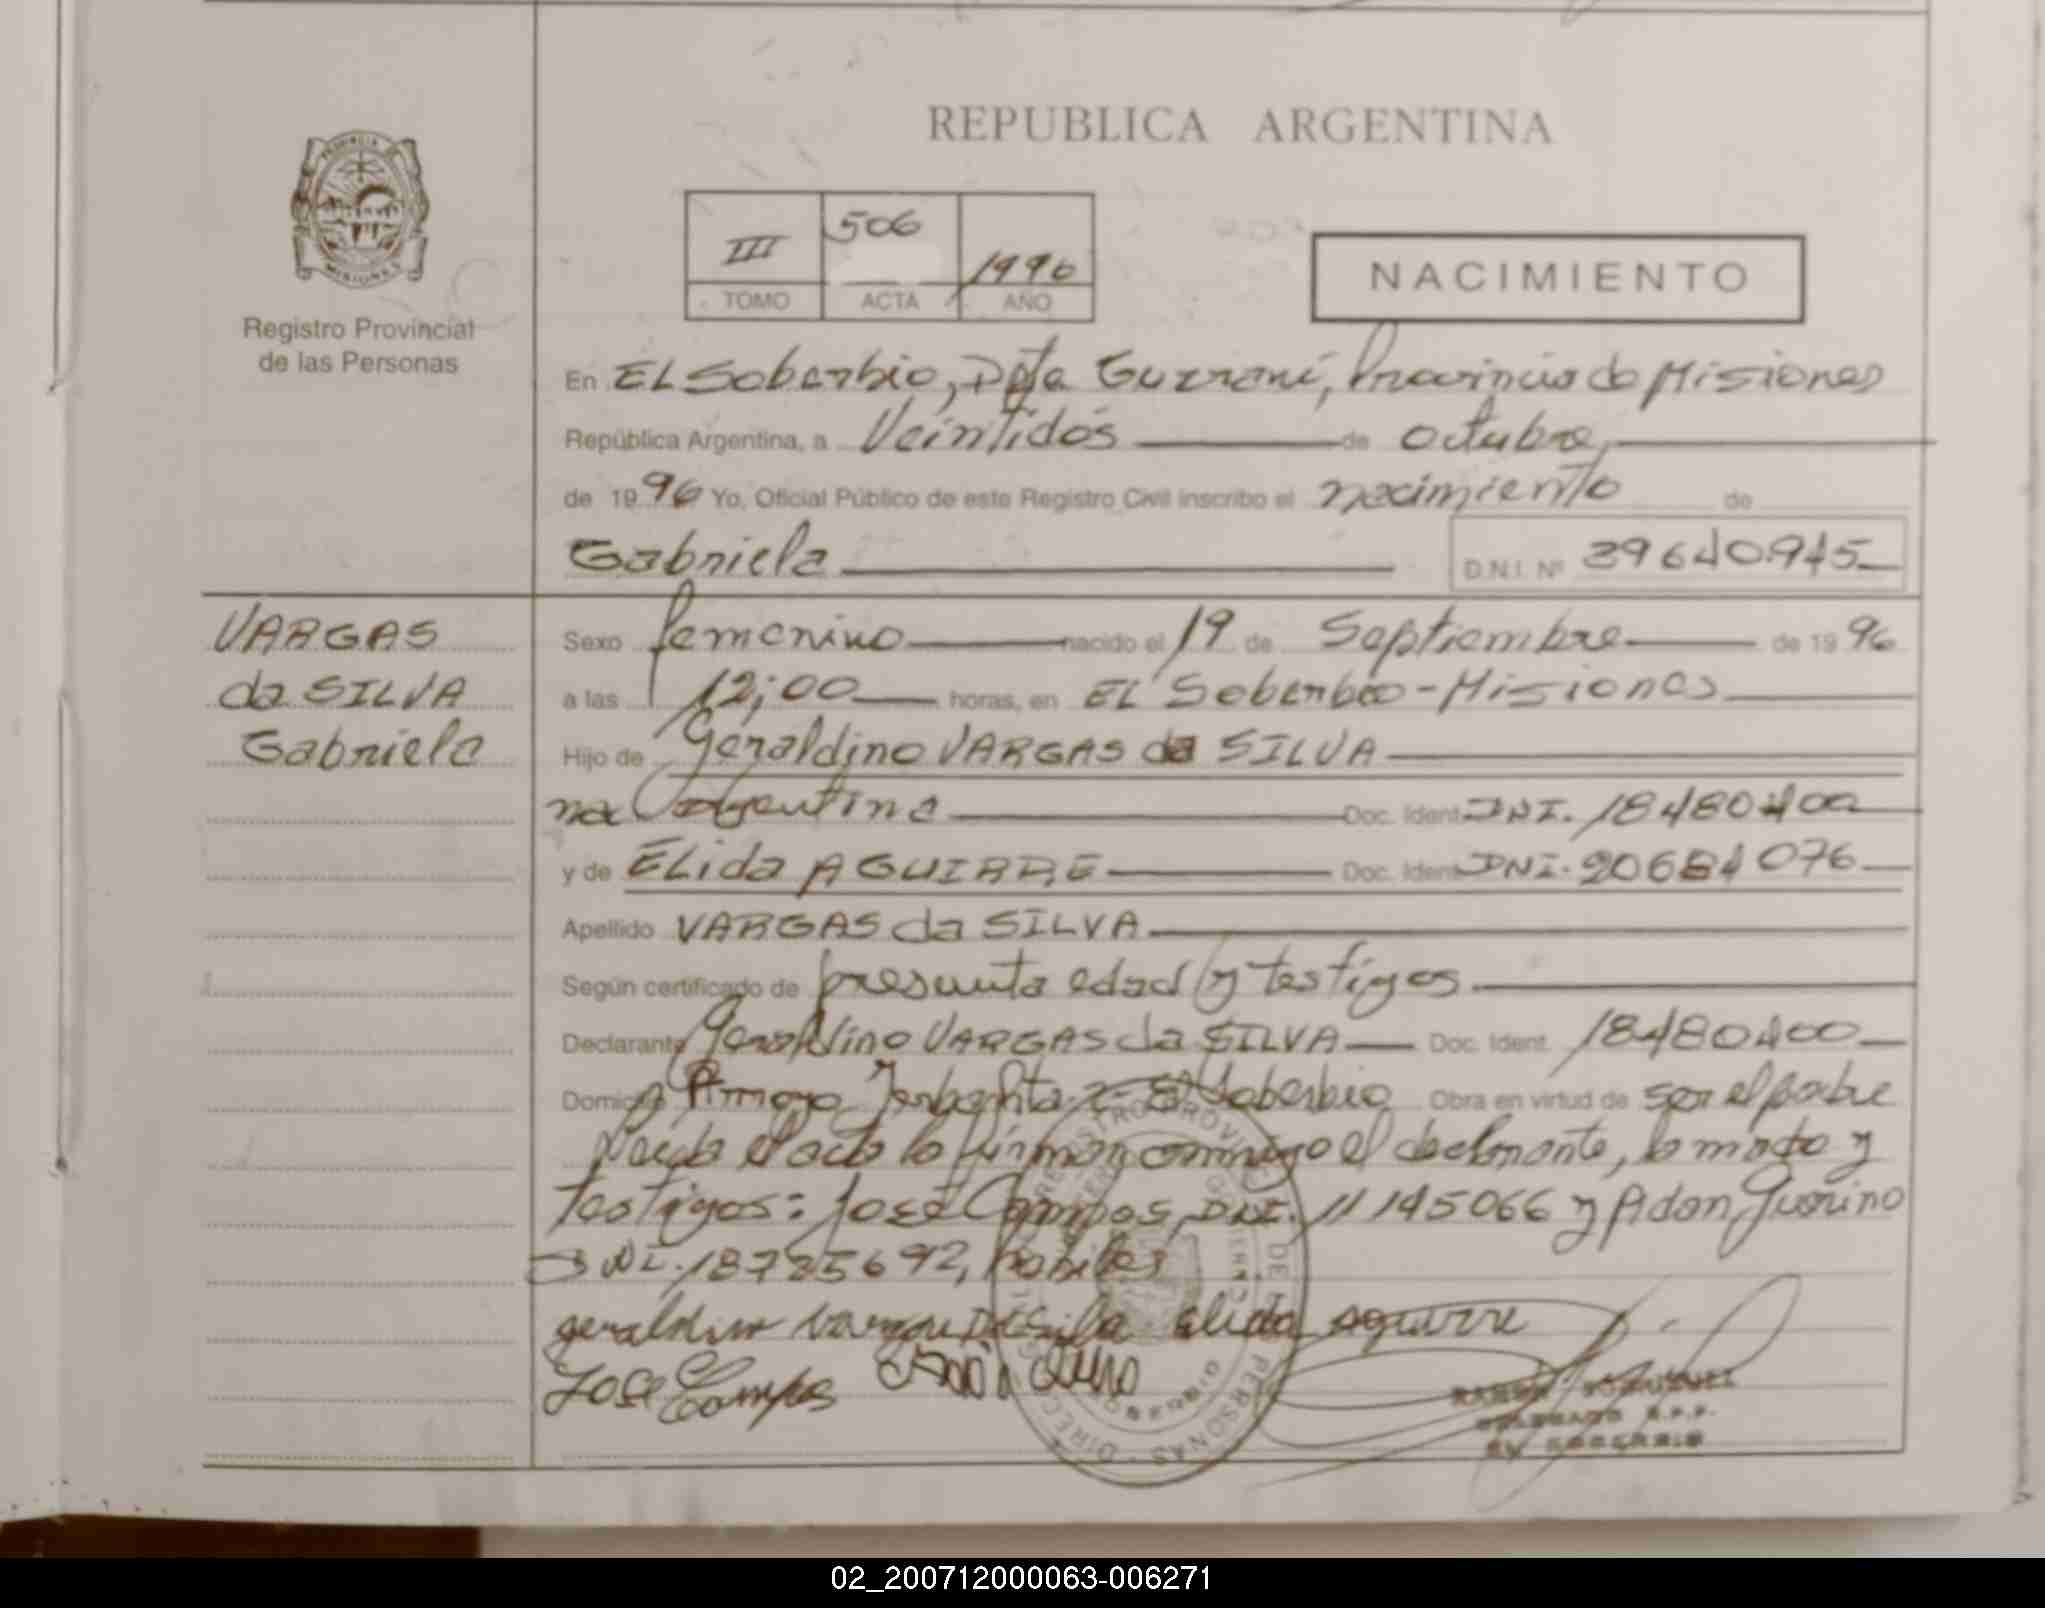 REPUBLICA ARGENTINA
III 506 1996
TOMO ACTA AÑO
NACIMIENTO
Registro Provincial
de las Personas
En EL Soberbio, Dpto Guaraní, Provincia de Misiones
República Argentina, a Veintidós de octubre,
de 1996 Yo, Oficial Público de este Registro Civil inscribo el nacimiento de
Gabriela D.N.I. Nº 39640.945
VARGAS
da SILVA
Gabriela
Sexo femenino nacido el 19 de Septiembre de 1996
a las 12;00 horas, en EL Soberbio-Misiones
Hijo de Geraldino VARGAS da SILVA
na argentina Doc. Ident DNI. 18480400
y de ELida AGUIRRE Doc. Ident DNI. 20684076
Apellido VARGAS da SILVA
Según certificado de presunta edad y testigos
Declarante Geraldino VARGAS da SILVA Doc. Ident. 18480400
Domicilio Arroyo El Soberbio Obra en virtud de ser el padre
Leída el acta la firman conmigo el declarante, la madre y
testigos: José Campos, DNI. 11145066 y Adan Guarino
DNI. 18725692, habiles
geraldino vargas Da Silva elida aguirre
Jose Campos
EL SOBERBIO
02_200712000063-006271